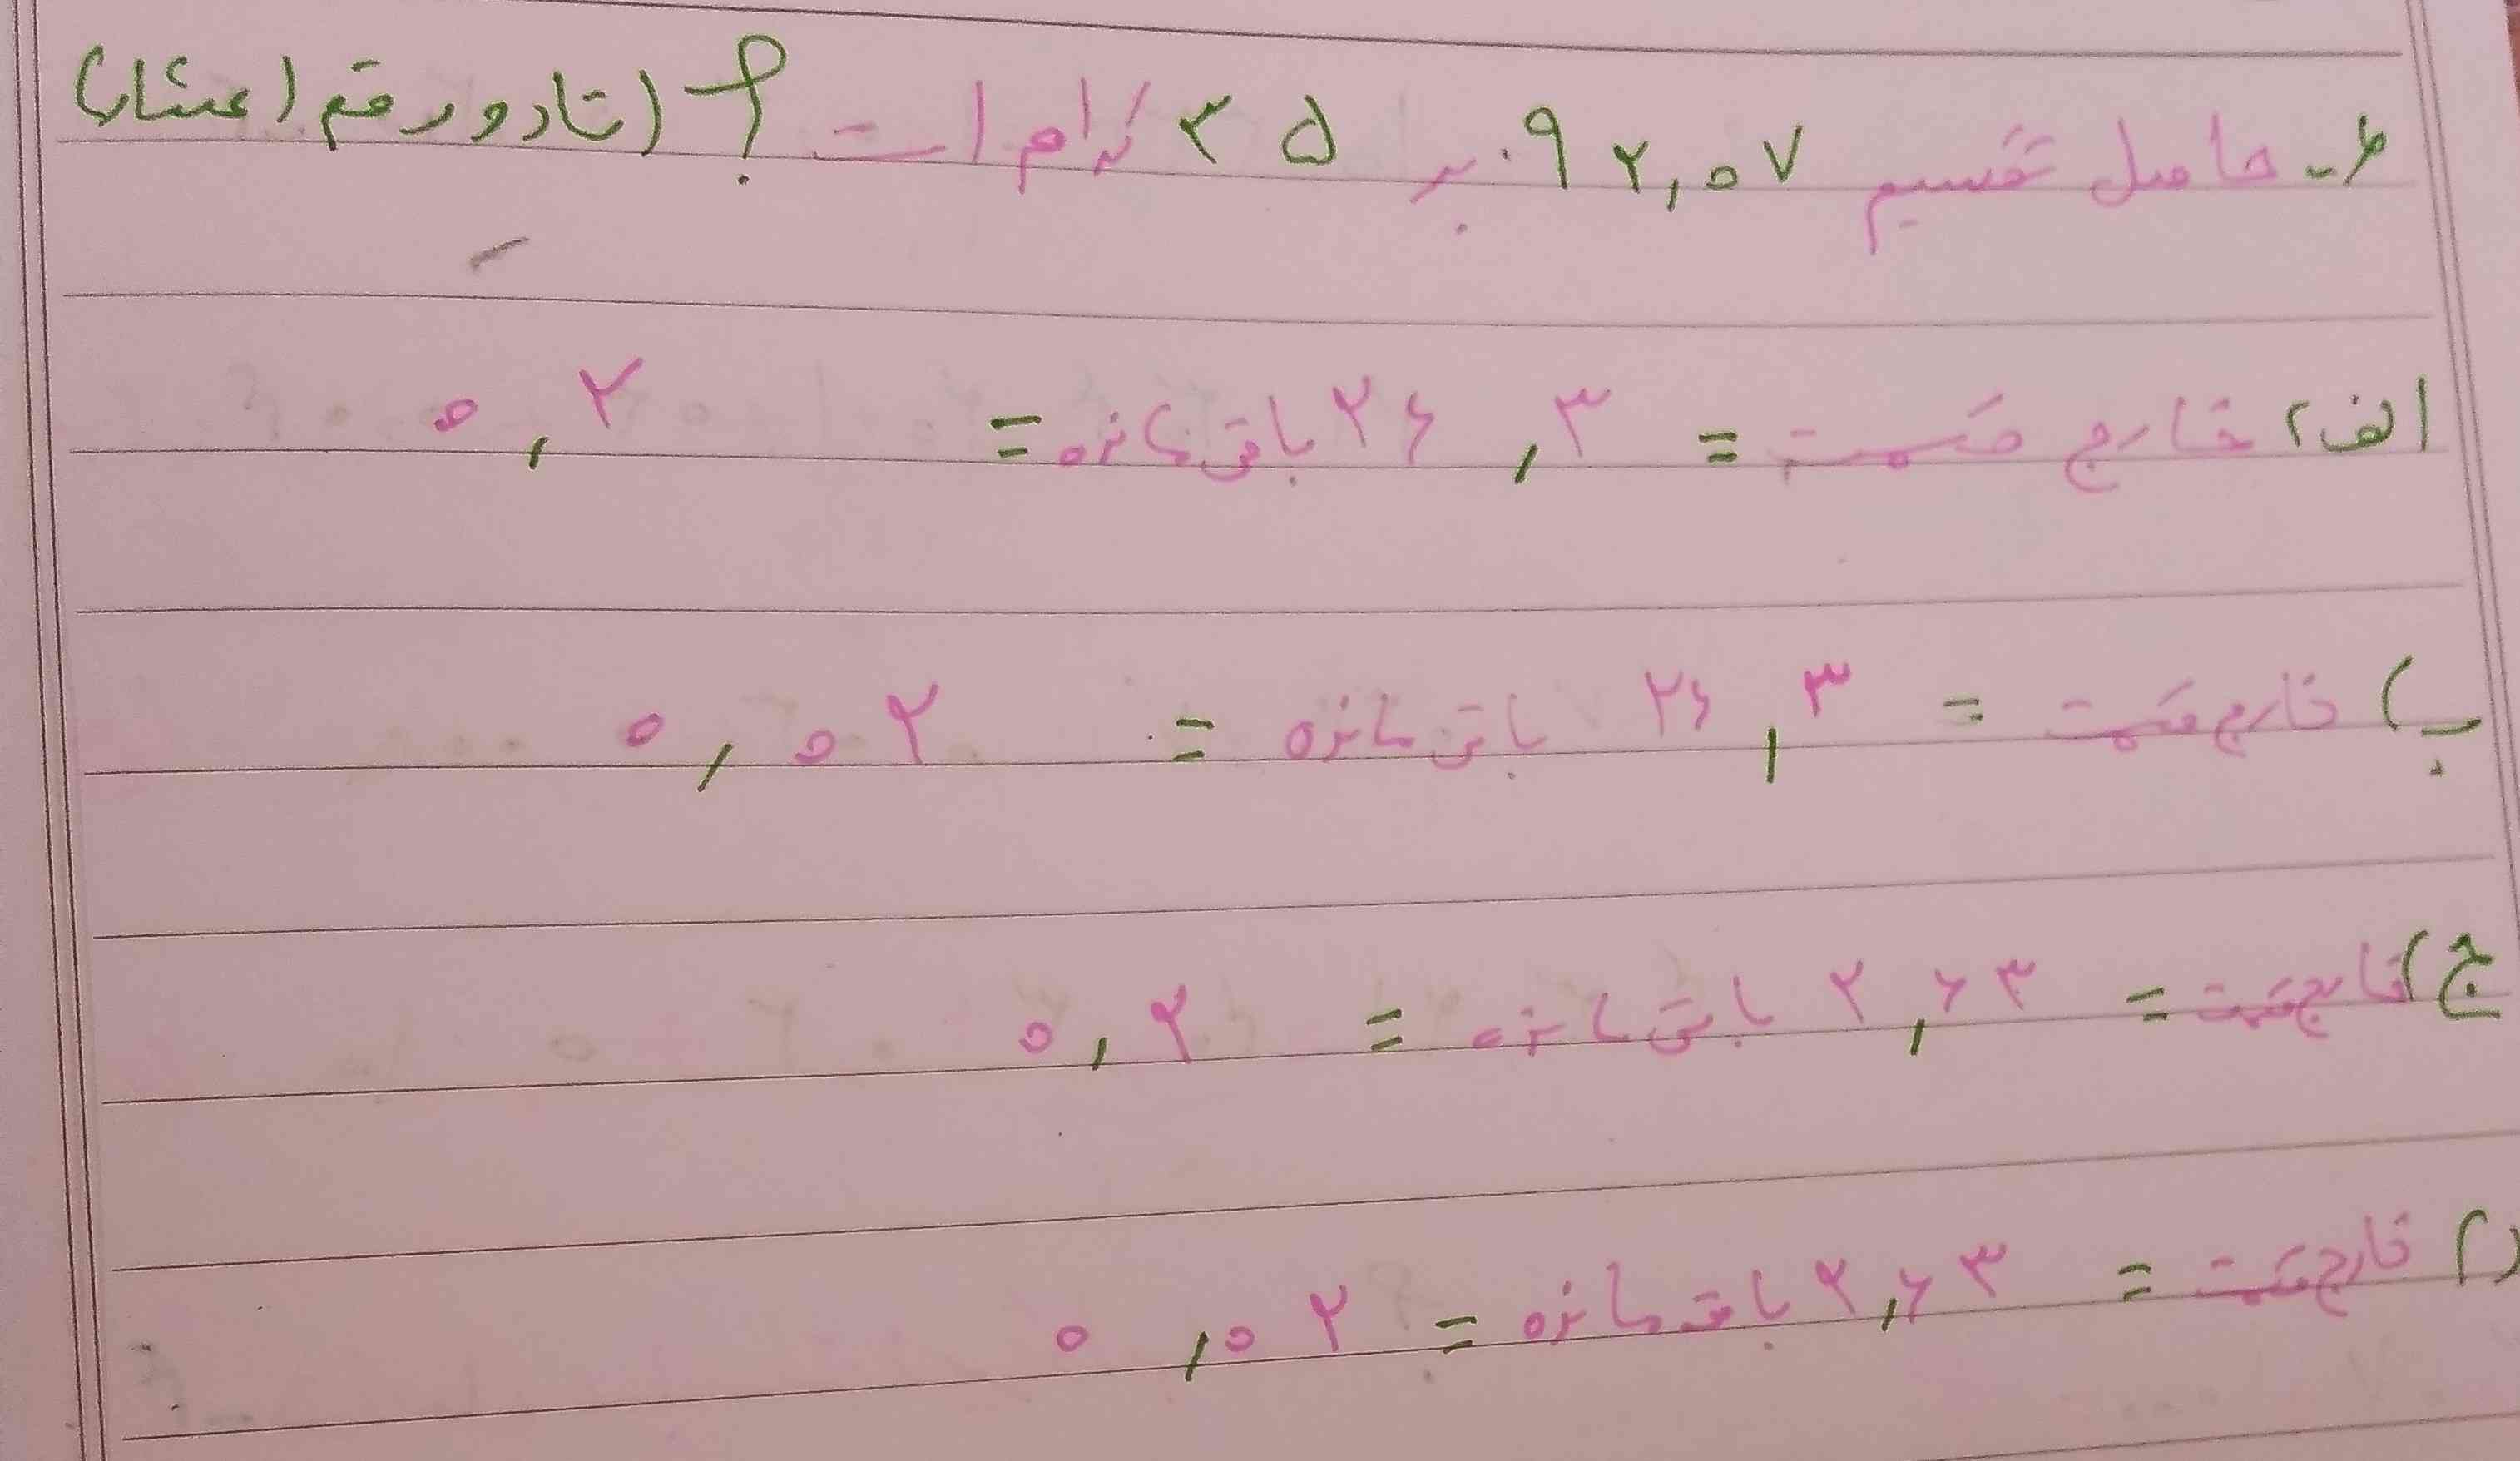 ۶- حاصل تقسیم ۹۲,۰۷ بر ۳۵ کدام است ؟ (تا دو رقم اعشار)
الف) خارج قسمت = ۲۶,۳ باقی مانده = ۰,۲
ب) خارج قسمت = ۲۶,۳ باقی مانده = ۰,۰۲
ج) خارج قسمت = ۲,۶۳ باقی مانده = ۰,۲
د) خارج قسمت = ۲,۶۳ باقی مانده = ۰,۰۲